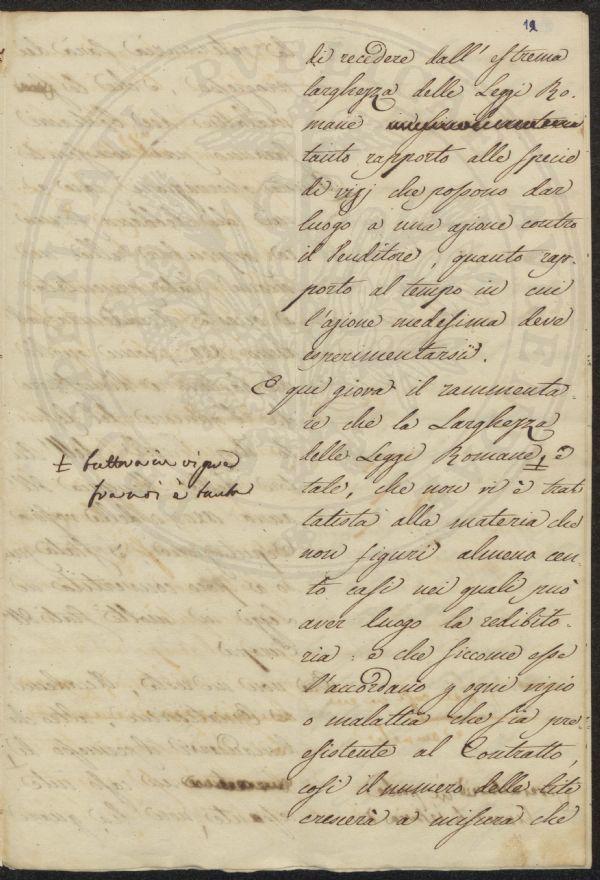 12
di recedere dall' estrema
larghezza delle Leggi Ro-
mane
tanto rapporto alle specie
di vizj che possono dar
luogo a una azione contro
il Venditore, quanto rap-
porto al tempo in cui
l'azione medesima deve
esperimentarsi.
E qui giova il rammenta-
re che la Larghezza
delle Leggi Romane ±, è
± tuttora in vigore
fra noi è tanta
tale, che non vi è trat-
tatista alla materia che
non figuri almeno cen-
to casi nei quali può
aver luogo la redibito-
ria: e che siccome esse
l'accordano p ogni vizio
o malattia che sia pre-
esistente al Contratto,
così il numero delle liti
crescerà a misura che